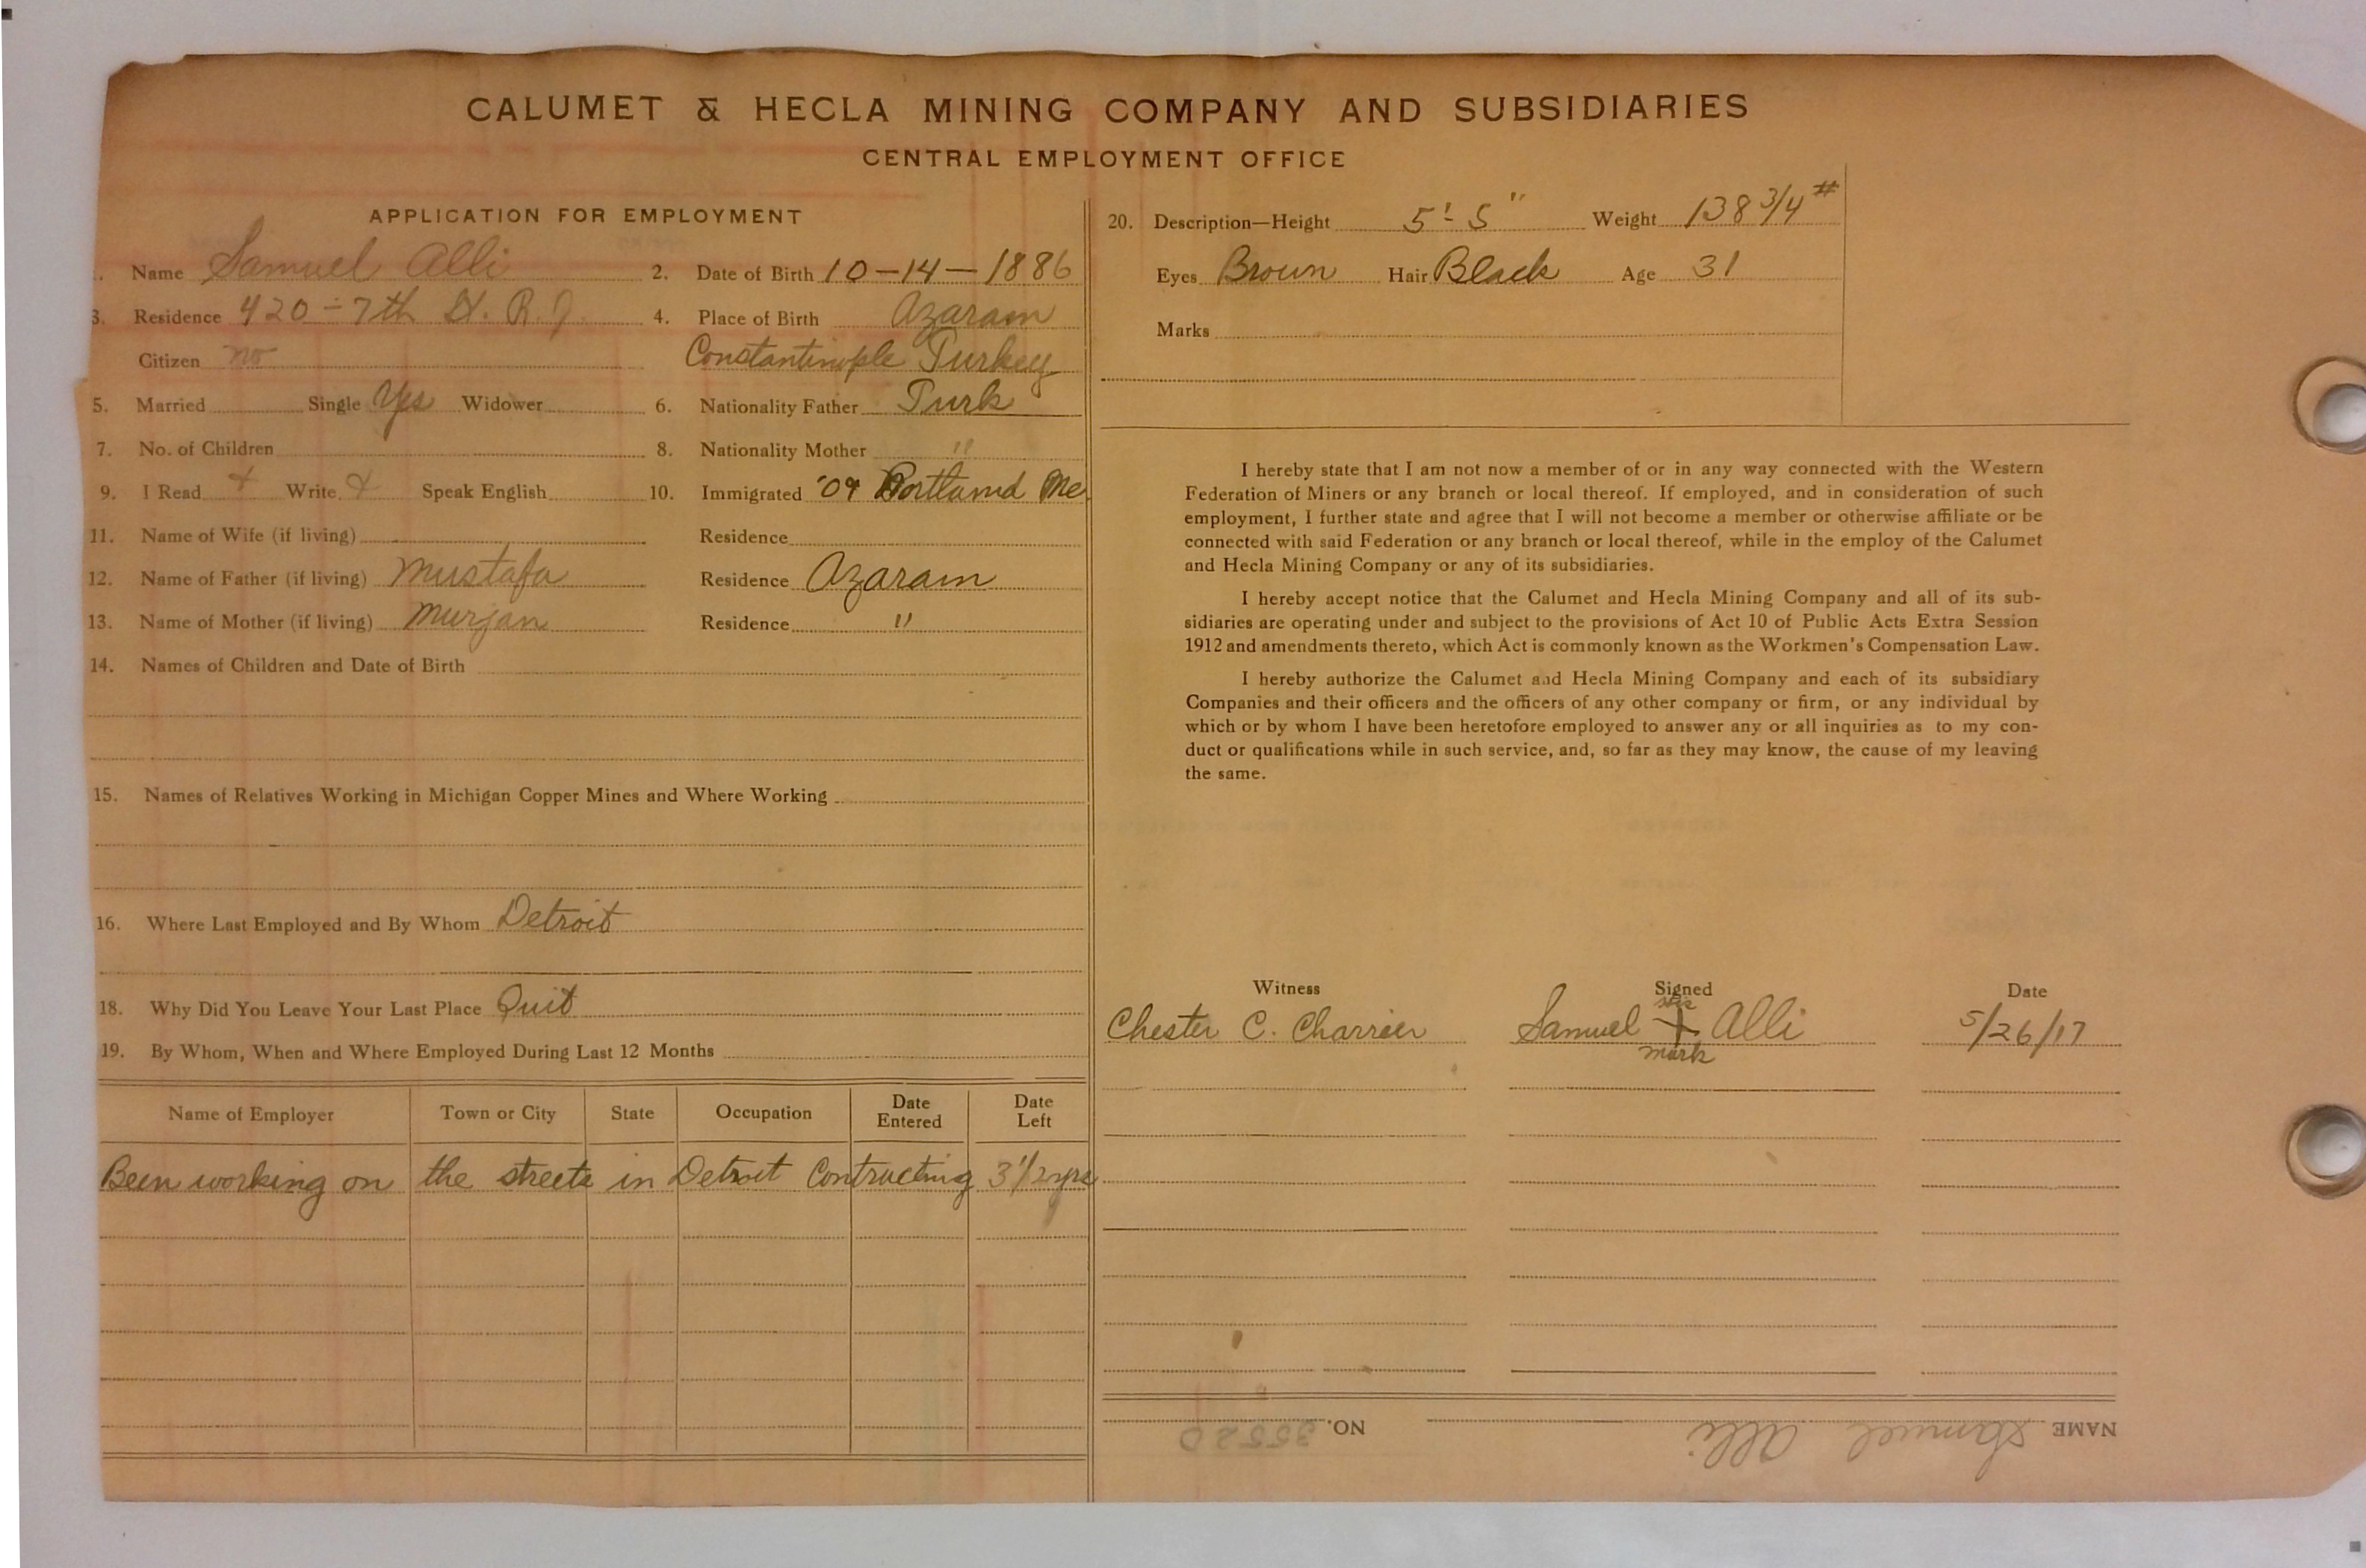 CALUMET & HECLA MINING COMPANY AND SUBSIDIARIES
CENTRAL EMPLOYMENT OFFICE
APPLICATION FOR EMPLOYMENT
Name Samuel Alli 2. Date of Birth 10-14-1886
3. Residence 420-7th St. R.J. 4. Place of Birth Azaram
Citizen no Constantinople Turkey
5. Married Single Yes Widower 6. Nationality Father Turk
7. No. of Children 8. Nationality Mother "
9. I Read x Write x Speak English 10. Immigrated '09 Portland Me
11. Name of Wife (if living) Residence
12. Name of Father (if living) Mustafa Residence Azaram
13. Name of Mother (if living) Murjan Residence "
14. Names of Children and Date of Birth
15. Names of Relatives Working in Michigan Copper Mines and Where Working
16. Where Last Employed and By Whom Detroit
18. Why Did You Leave Your Last Place Quit
19. By Whom, When and Where Employed During Last 12 Months
Name of Employer Town or City State Occupation Date Entered Date Left
Been working on the streets in Detroit Contracting 3 1/2 yrs
20. Description—Height 5'-5" Weight 138 3/4 #
Eyes Brown Hair Black Age 31
Marks
I hereby state that I am not now a member of or in any way connected with the Western
Federation of Miners or any branch or local thereof. If employed, and in consideration of such
employment, I further state and agree that I will not become a member or otherwise affiliate or be
connected with said Federation or any branch or local thereof, while in the employ of the Calumet
and Hecla Mining Company or any of its subsidiaries.
I hereby accept notice that the Calumet and Hecla Mining Company and all of its sub-
sidiaries are operating under and subject to the provisions of Act 10 of Public Acts Extra Session
1912 and amendments thereto, which Act is commonly known as the Workmen's Compensation Law.
I hereby authorize the Calumet and Hecla Mining Company and each of its subsidiary
Companies and their officers and the officers of any other company or firm, or any individual by
which or by whom I have been heretofore employed to answer any or all inquiries as to my con-
duct or qualifications while in such service, and, so far as they may know, the cause of my leaving
the same.
Witness Signed Date
his
Chester C. Charrier Samuel + Alli 5/26/17
mark
NAME Samuel Alli NO. 35520